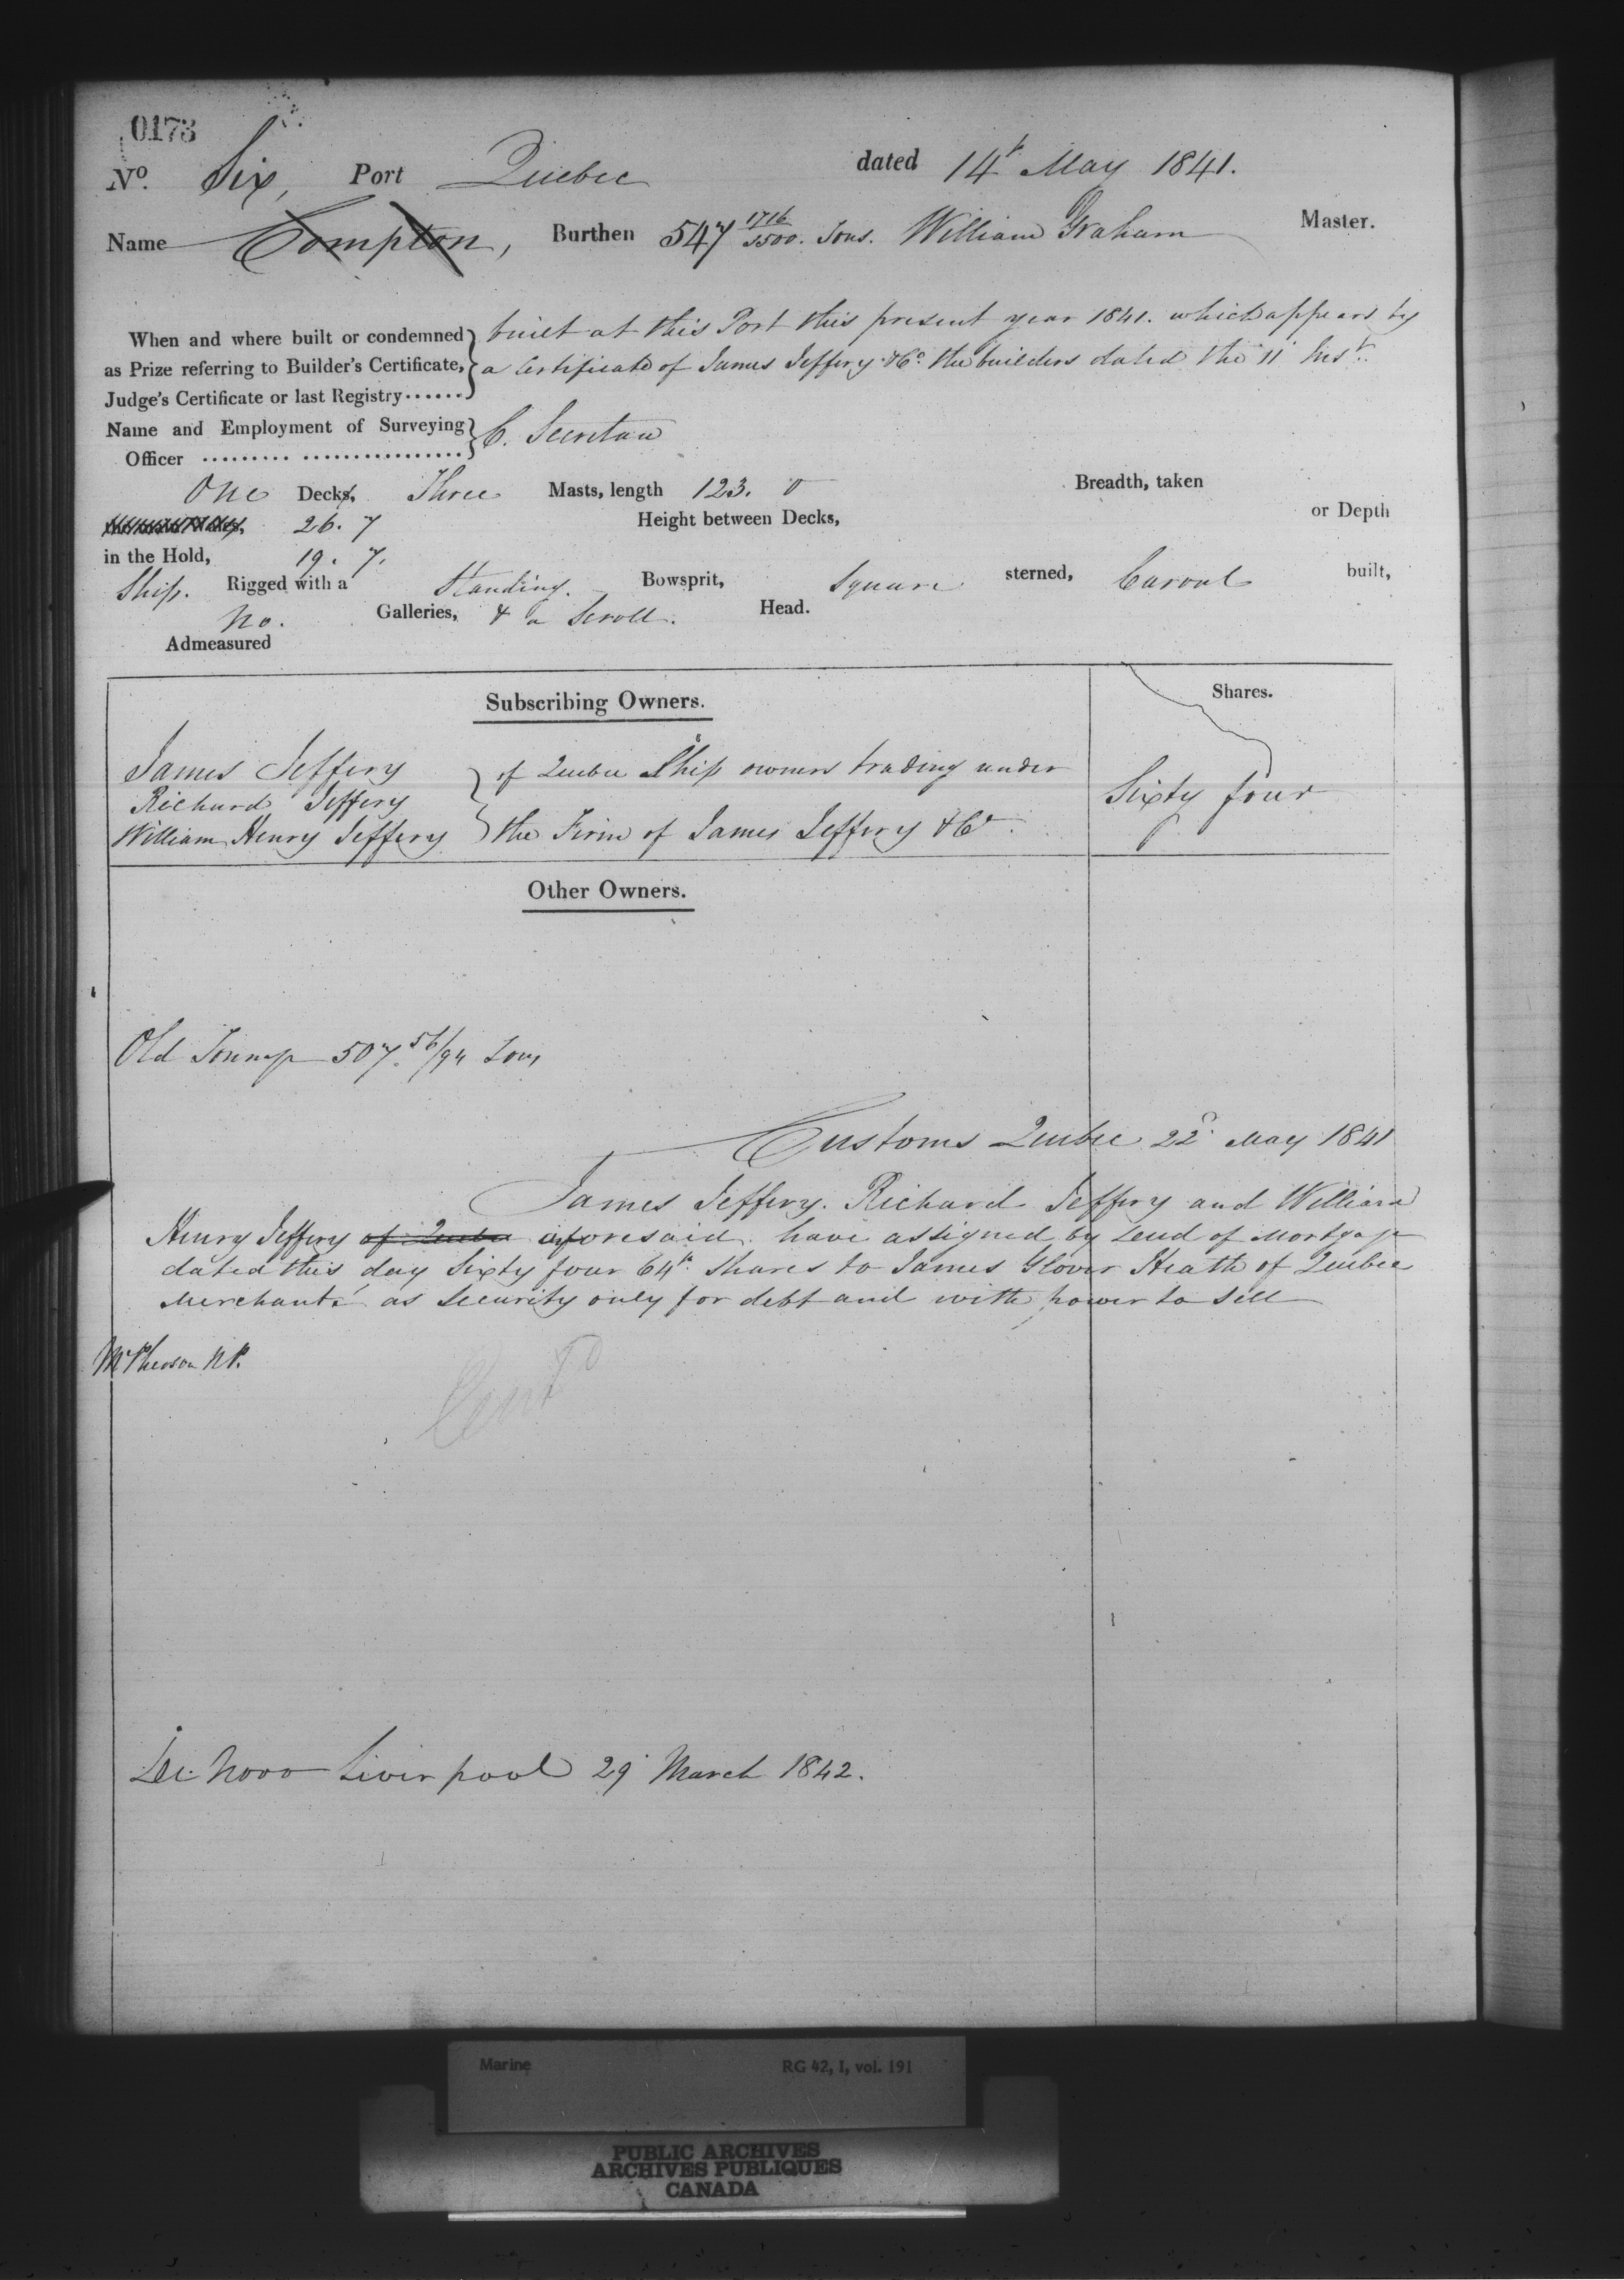 0173
No. Six, Port Quebec dated 14th May 1841.
Name Compton, Burthen 547 1716/3500. Tons. William Graham Master.
When and where built or condemned built at this Port this present year 1841. which appears by
as Prize referring to Builder's Certificate, a Certificate of James Jeffery & Co. the builders dated the 11 Inst.
Judge's Certificate or last Registry......
Name and Employment of Surveying C. Secretan
Officer ......... ................
One Decks, Three Masts, length 123. 0 Breadth, taken
26. 7 Height between Decks, or Depth
in the Hold, 19. 7.
Ship. Rigged with a Standing. Bowsprit, Square sterned, Carvel built,
No. Galleries, & a Scroll. Head.
Admeasured
Subscribing Owners. Shares.
James Jeffery of Quebec Ship owners trading under
Richard Jeffery Sixty four
William Henry Jeffery the Firm of James Jeffery & Co.
Other Owners.
Old Tonnage 507. 56/94 Tons
Customs Quebec 22d May 1841
James Jeffery. Richard Jeffery and William
Henry Jeffery of Quebec aforesaid have assigned by Deed of Mortgage
dated this day Sixty four 64th Shares to James Glover Heath of Quebec
Merchant as Security only for debt and with power to Sell
McPherson N.P.
De Novo Liverpool 29 March 1842.
Marine RG 42, I, vol. 191
PUBLIC ARCHIVES
ARCHIVES PUBLIQUES
CANADA